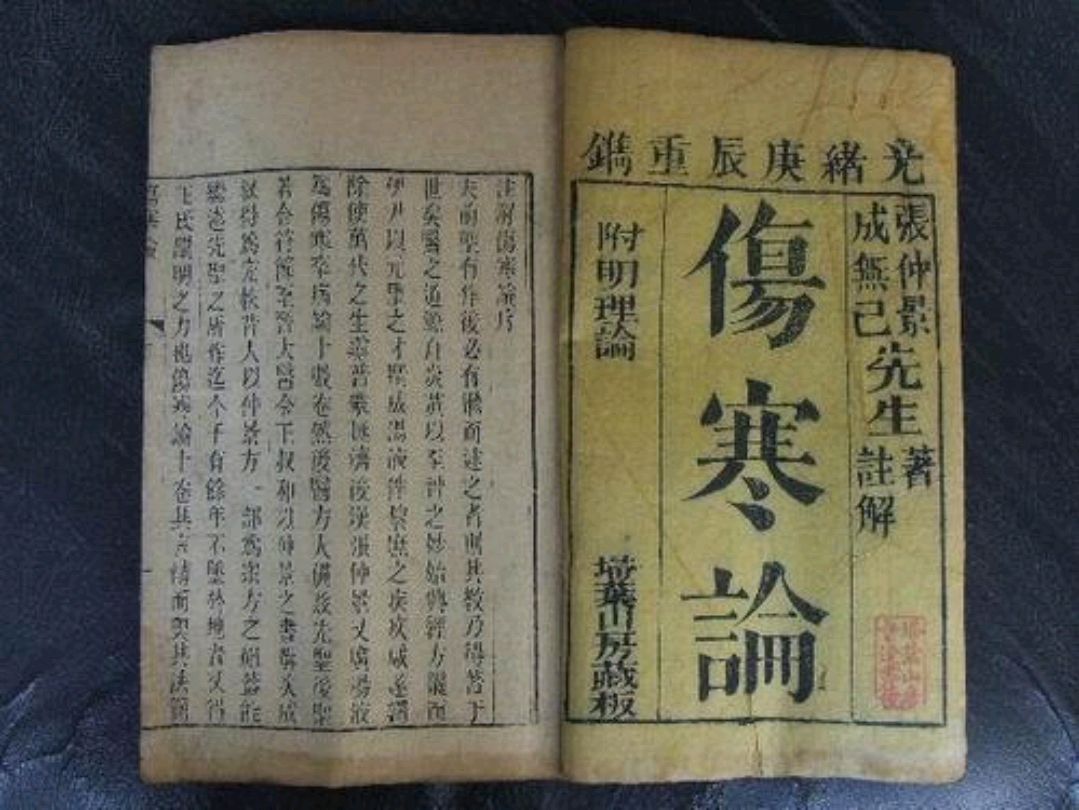 光緒庚辰重鐫
張仲景先生著
成無己先生註解
傷寒論
附明理論
埽葉山房藏板
註解傷寒論序
夫前聖有作後必有繼而述之者則其教乃得著于
世矣醫之道源自炎黃以至神之妙始興經方繼而
伊尹以元聖之才撰成湯液俾黎庶之疾疢咸遂蠲
除使萬代之生靈普蒙拯濟後漢張仲景又廣湯液
為傷寒卒病論十數卷然後醫方大備茲先聖後聖
若合符節至晉太醫令王叔和以仲景之書撰次成
敘得為完秩昔人以仲景方一部為眾方之祖蓋能
繼述先聖之所作迄今千有餘年不墜於地者又得
王氏闡明之力也傷寒論十卷其言精而奧其法簡
傷寒論